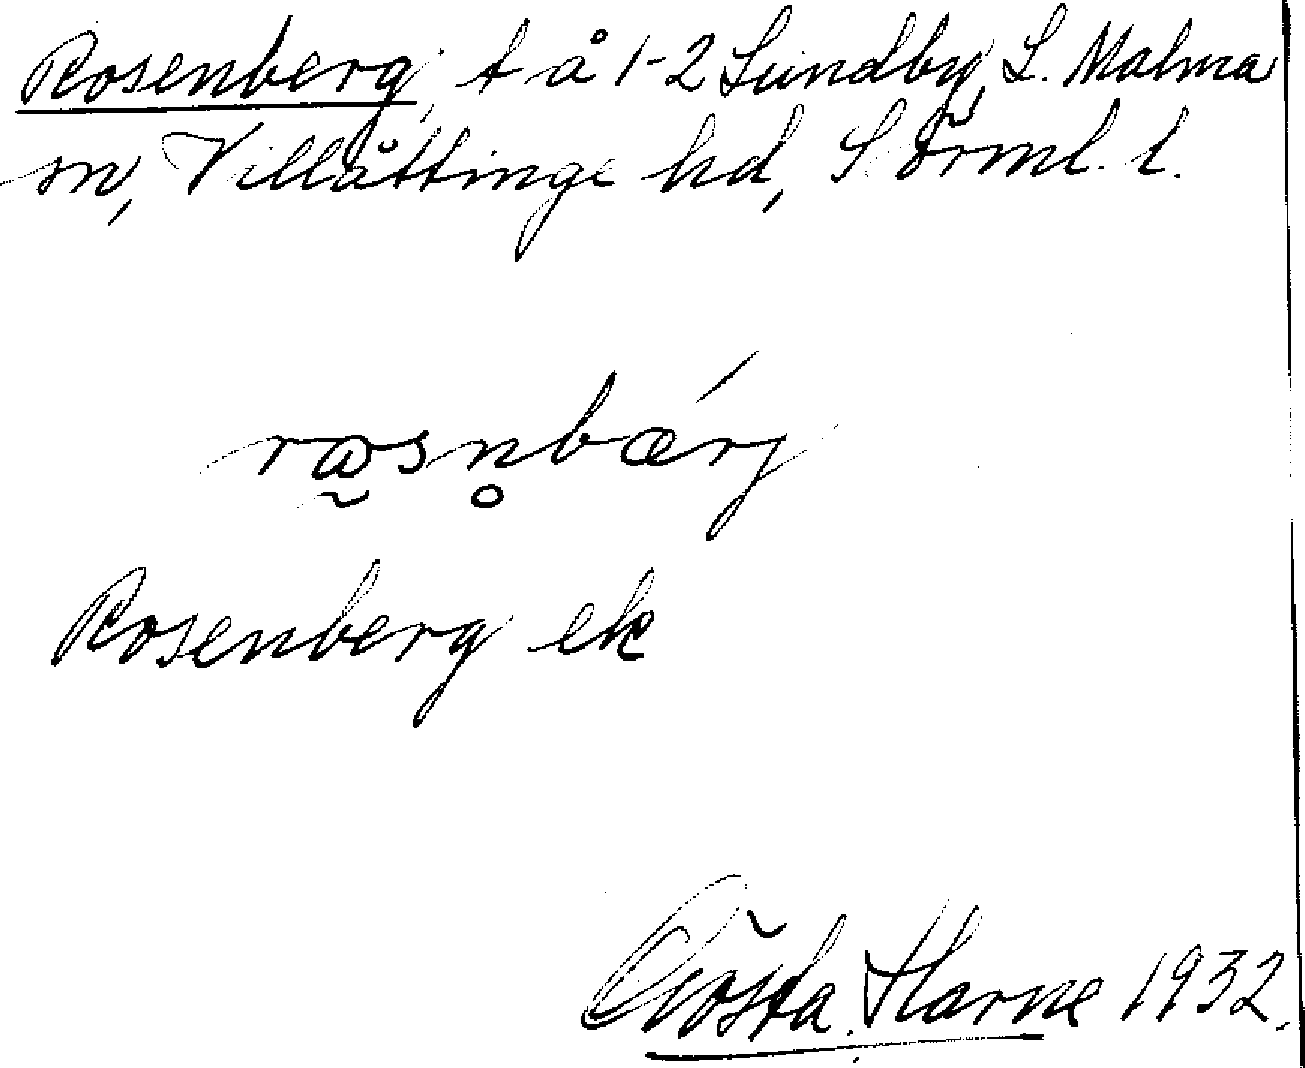 Rosenberg, t å 1-2 Lundby, L. Malma
sn, Villåttinge hd, Sörml. l.
rɷsn̥bǽrj
Rosenberg ek
Gösta Harne 1932.